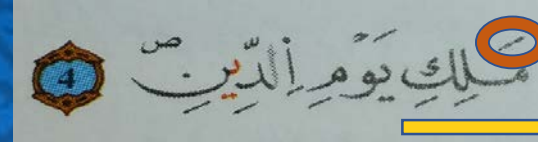 مَلِكِ يَوْمِ اِ۬لدِّينِ ص 4